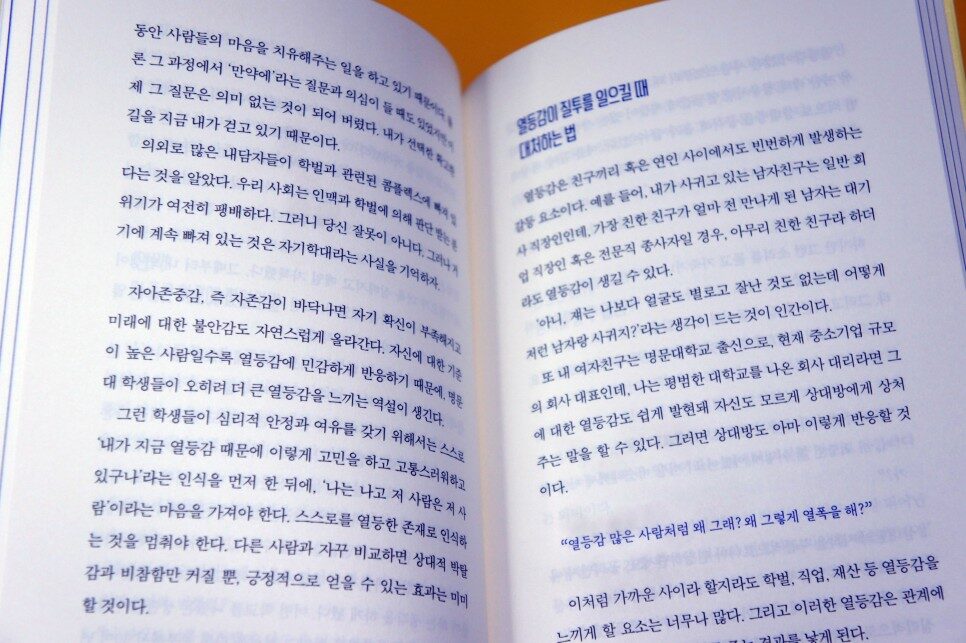 동안 사람들의 마음을 치유해주는 일을 하고 있기 때문이다. 물
론 그 과정에서 ‘만약에’라는 질문과 의심이 들 때도 있었지만 이
제 그 질문은 의미 없는 것이 되어 버렸다. 내가 선택한 확고한
길을 지금 내가 걷고 있기 때문이다.
의외로 많은 내담자들이 학벌과 관련된 콤플렉스에 빠져 있
다는 것을 알았다. 우리 사회는 인맥과 학벌에 의해 판단 받는 분
위기가 여전히 팽배하다. 그러니 당신 잘못이 아니다. 그러나 거
기에 계속 빠져 있는 것은 자기학대라는 사실을 기억하자.
자아존중감, 즉 자존감이 바닥나면 자기 확신이 부족해지고
미래에 대한 불안감도 자연스럽게 올라간다. 자신에 대한 기준
이 높은 사람일수록 열등감에 민감하게 반응하기 때문에, 명문
대 학생들이 오히려 더 큰 열등감을 느끼는 역설이 생긴다.
그런 학생들이 심리적 안정과 여유를 갖기 위해서는 스스로
‘내가 지금 열등감 때문에 이렇게 고민을 하고 고통스러워하고
있구나’라는 인식을 먼저 한 뒤에, ‘나는 나고 저 사람은 저 사
람’이라는 마음을 가져야 한다. 스스로를 열등한 존재로 인식하
는 것을 멈춰야 한다. 다른 사람과 자꾸 비교하면 상대적 박탈
감과 비참함만 커질 뿐, 긍정적으로 얻을 수 있는 효과는 미미
할 것이다.
열등감이 질투를 일으킬 때
대처하는 법
열등감은 친구끼리 혹은 연인 사이에서도 빈번하게 발생하는
감동 요소이다. 예를 들어, 내가 사귀고 있는 남자친구는 일반 회
사 직장인인데, 가장 친한 친구가 얼마 전 만나게 된 남자는 대기
업 직장인 혹은 전문직 종사자일 경우, 아무리 친한 친구라 하더
라도 열등감이 생길 수 있다.
‘아니, 쟤는 나보다 얼굴도 별로고 잘난 것도 없는데 어떻게
저런 남자랑 사귀지?’라는 생각이 드는 것이 인간이다.
또 내 여자친구는 명문대학교 출신으로, 현재 중소기업 규모
의 회사 대표인데, 나는 평범한 대학교를 나온 회사 대리라면 그
에 대한 열등감도 쉽게 발현돼 자신도 모르게 상대방에게 상처
주는 말을 할 수 있다. 그러면 상대방도 아마 이렇게 반응할 것
이다.
“열등감 많은 사람처럼 왜 그래? 왜 그렇게 열폭을 해?”
이처럼 가까운 사이라 할지라도 학벌, 직업, 재산 등 열등감을
느끼게 할 요소는 너무나 많다. 그리고 이러한 열등감은 관계에
결과를 낳게 된다.